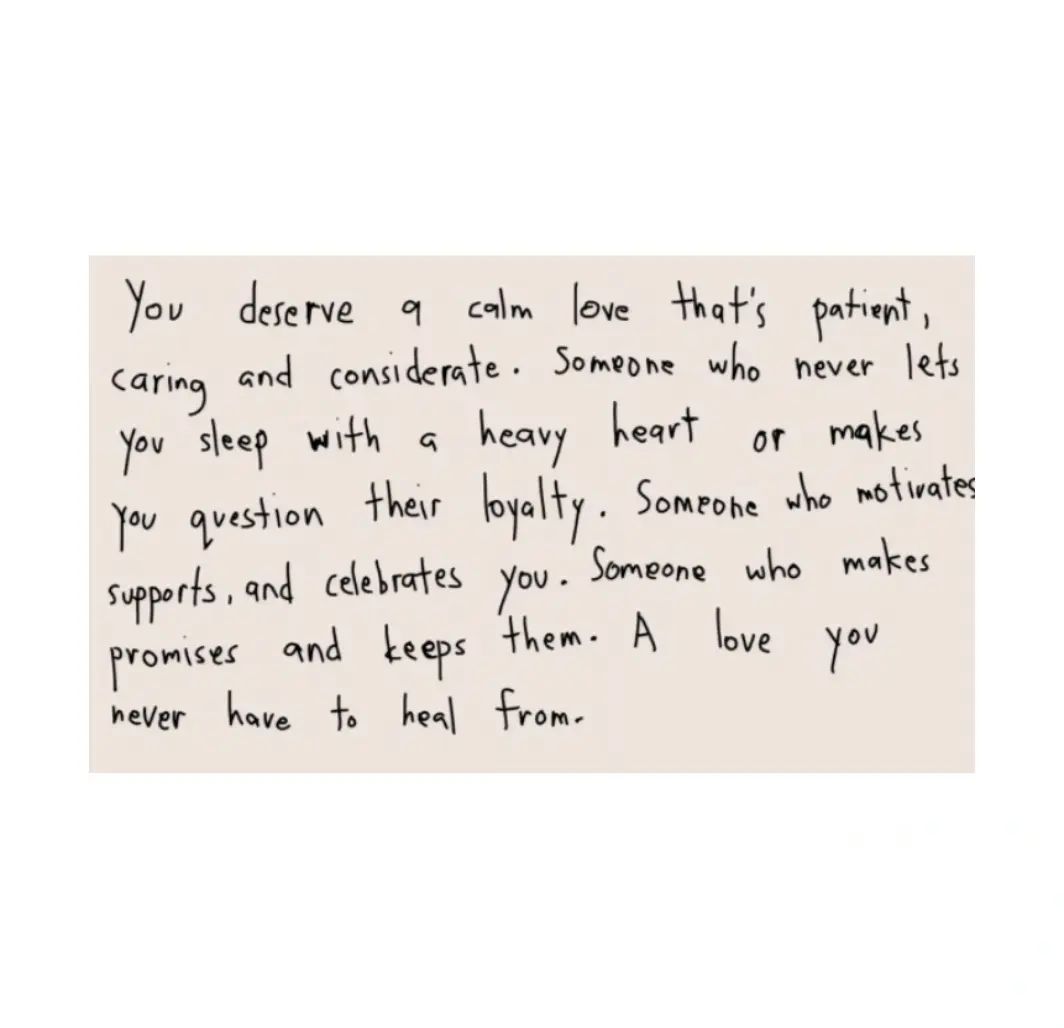 You deserve a calm love that's patient,
caring and considerate. Someone who never lets
you sleep with a heavy heart or makes
you question their loyalty. Someone who motivates
supports, and celebrates you. Someone who makes
promises and keeps them. A love you
never have to heal from.